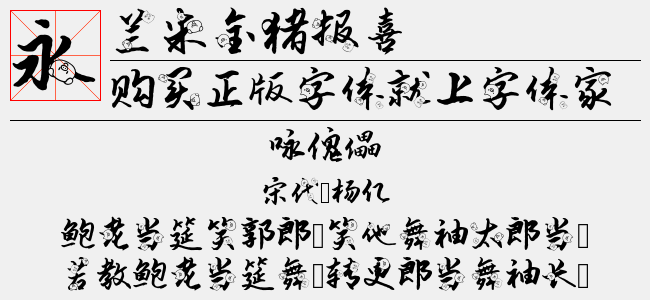 永
兰米金猪报喜
购买正版字体就上字体家
咏傀儡
宋代□杨亿
鲍老当筵笑郭郎□笑他舞袖太郎当□
若教鲍老当筵舞□转更郎当舞袖长□